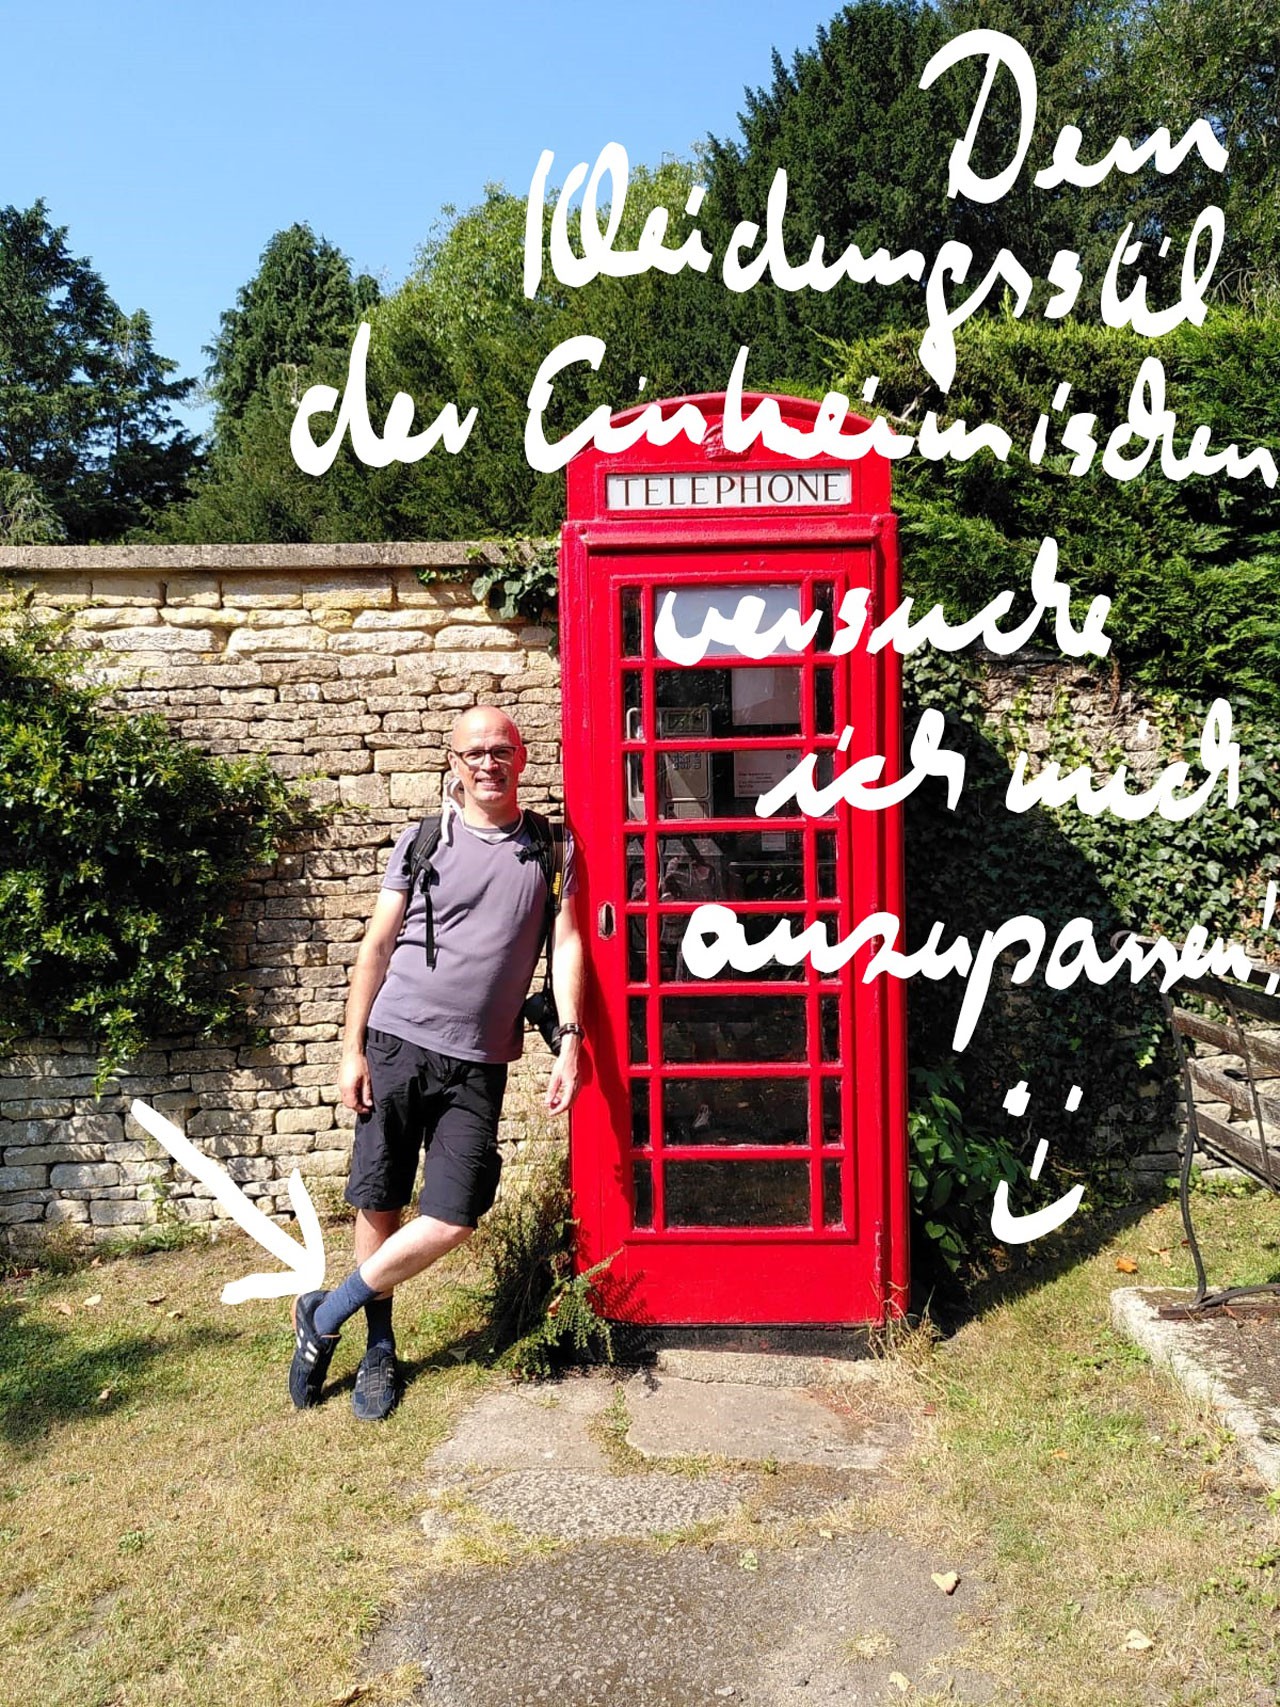 Dem
Kleidungsstil
der Einheimischen
TELEPHONE
versuche
ich mich
anzupassen!
Nikon